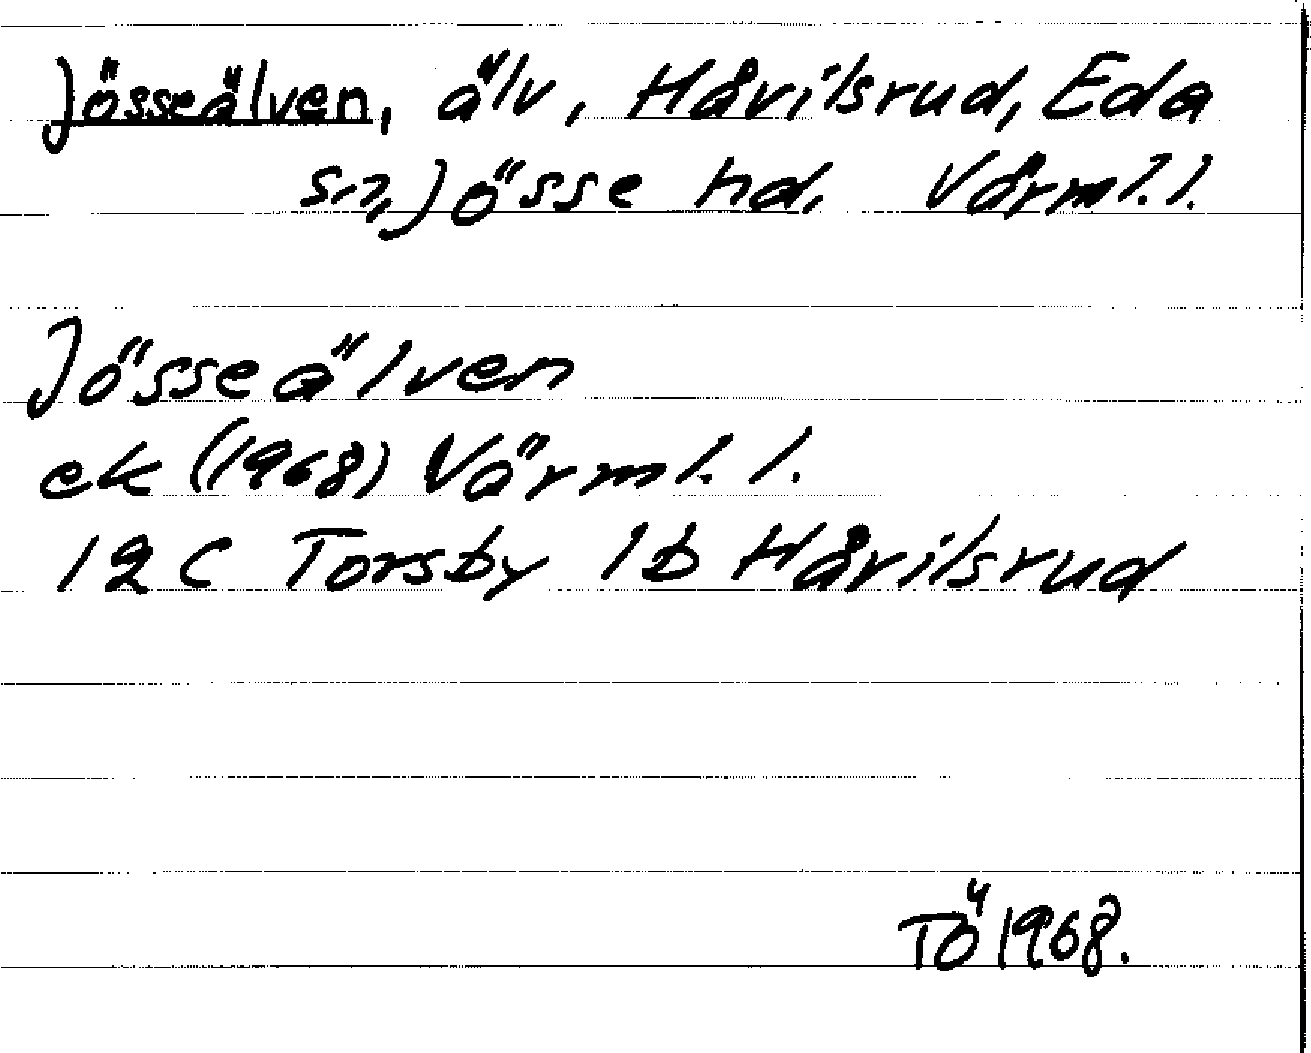 Jösseälven, älv, Håvilsrud, Eda
sn, Jösse hd, Värml. l.
Jösseälven
ek (1968) Värml. l.
12 C Torsby 1 b Håvilsrud
TÖ 1968.